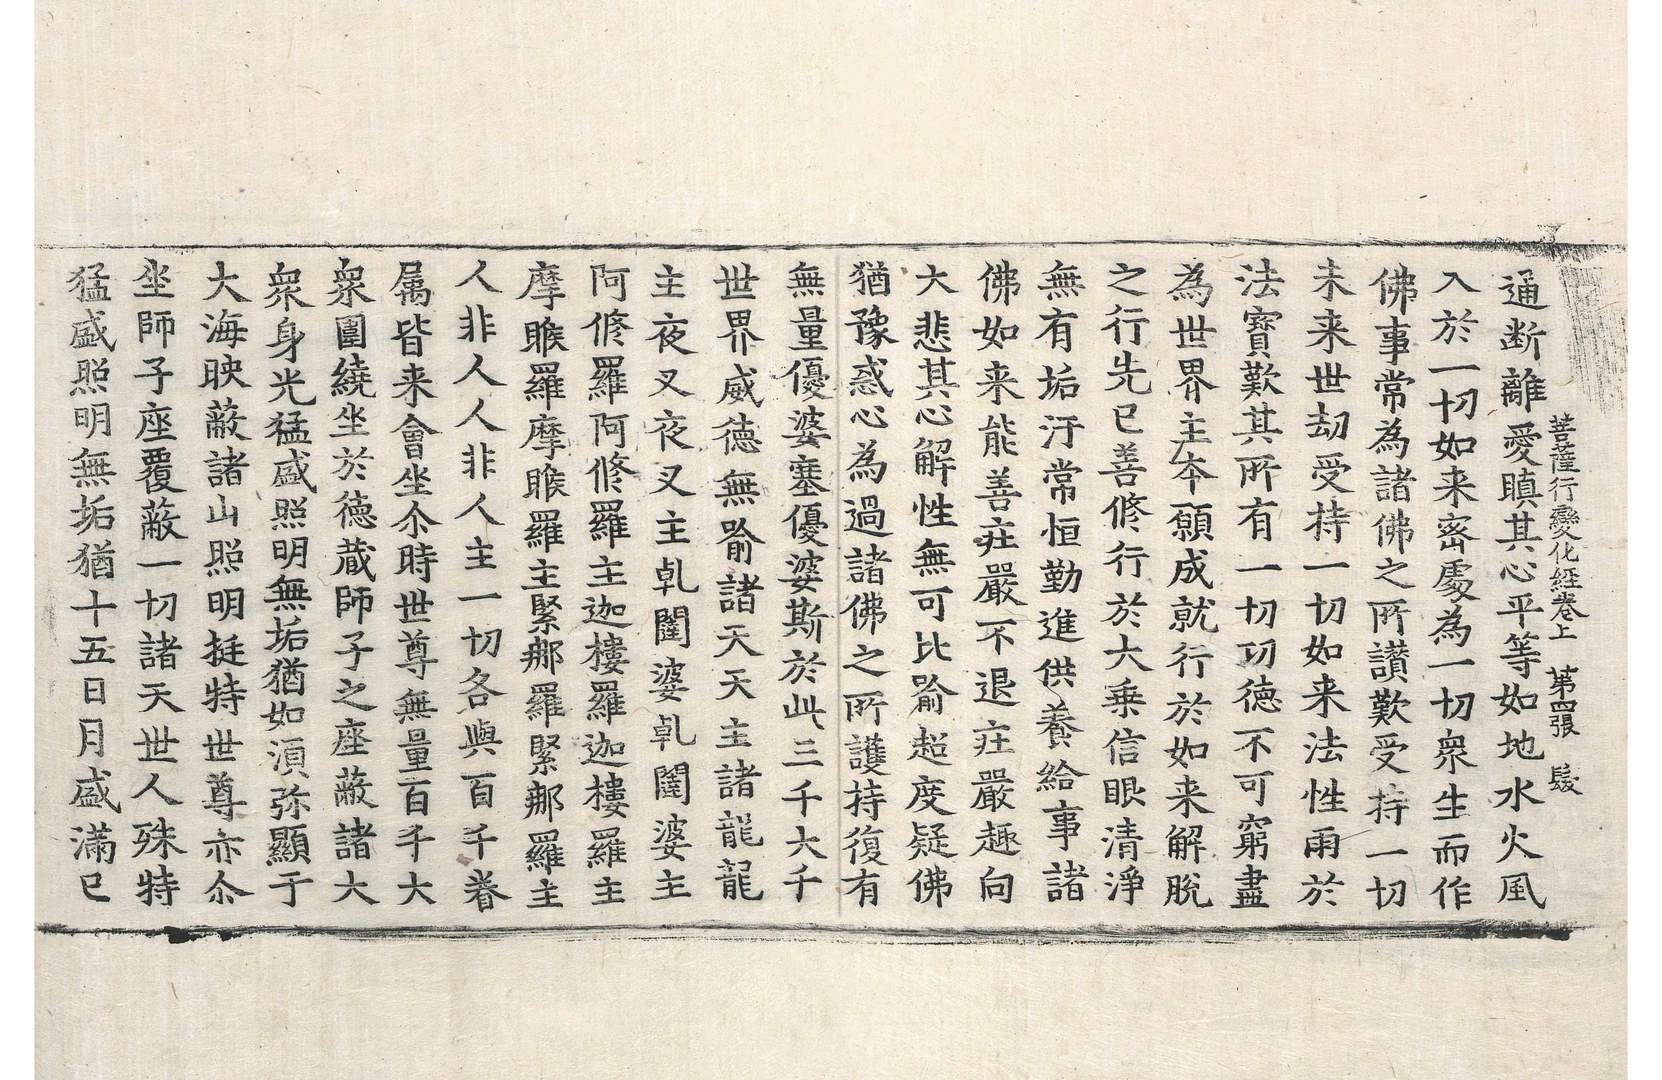 菩薩行變化經卷上　第四張　髮
通断離愛瞋其心平等如地水火風
入於一切如来密處為一切衆生而作
佛事常為諸佛之所讃歎受持一切
未来世劫受持一切如来法性雨於
法寳歎其所有一切功德不可窮盡
為世界主本願成就行於如来解脫
之行先已善修行於大乗信眼清淨
無有垢汙常恒勤進供養給事諸
佛如来能善庄嚴不退庄嚴趣向
大悲其心解性無可比喻超度疑佛
猶豫惑心為過諸佛之所護持復有
無量優婆塞優婆斯於此三千大千
世界威德無喻諸天天主諸龍龍
主夜叉夜叉主乹闥婆乹闥婆主
阿修羅阿修羅主迦樓羅迦樓羅主
摩睺羅摩睺羅主緊那羅緊那羅主
人非人人非人主一切各與百千眷
属皆来會坐尒時世尊無量百千大
衆圍繞坐於德蔵師子之座蔽諸大
衆身光猛盛照明無垢猶如湏弥顯于
大海映蔽諸山照明挺特世尊亦尒
坐師子座覆蔽一切諸天世人殊特
猛盛照明無垢猶十五日月盛滿已